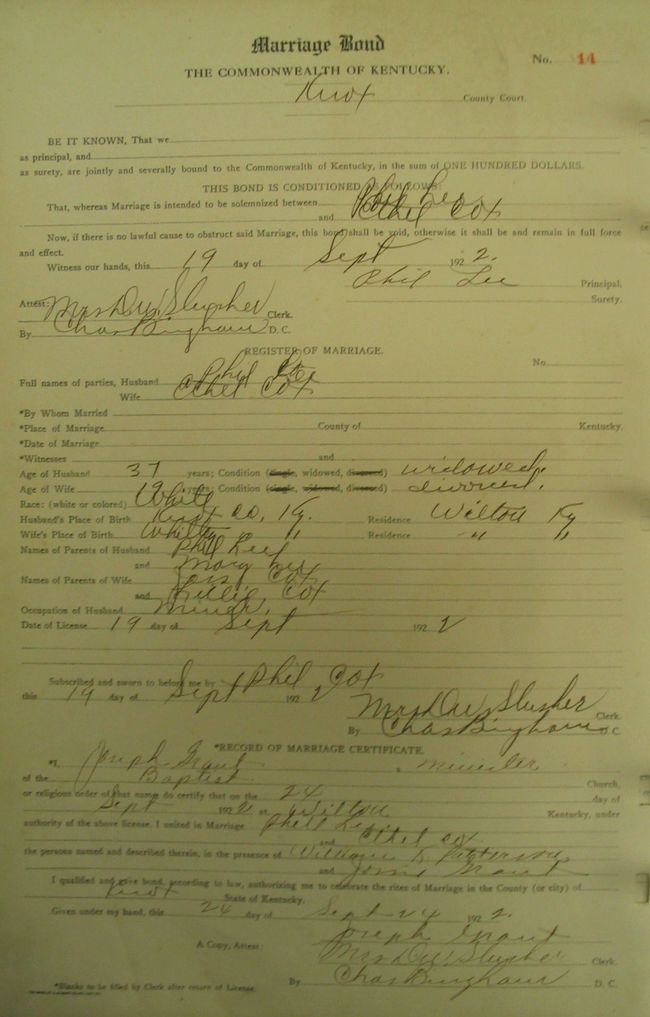 Marriage Bond
No. 14
THE COMMONWEALTH OF KENTUCKY.
Knox County Court.
BE IT KNOWN, That we
as principal, and
as surety, are jointly and severally bound to the Commonwealth of Kentucky, in the sum of ONE HUNDRED DOLLARS.
THIS BOND IS CONDITIONED AS FOLLOWS:
That, whereas Marriage is intended to be solemnized between Phil Lee
and Ethel Cox
Now, if there is no lawful cause to obstruct said Marriage, this bond shall be void, otherwise it shall be and remain in full force
and effect.
Witness our hands, this 19 day of Sept 1922.
Phil Lee Principal.
Surety.
Attest: Mrs D W Slusher Clerk.
By Chas Bingham D.C.
REGISTER OF MARRIAGE.
No.
Full names of parties, Husband Phil Lee
Wife Ethel Cox
*By Whom Married
*Place of Marriage County of Kentucky.
*Date of Marriage
*Witnesses and
Age of Husband 37 years; Condition (single, widowed, divorced) widowed.
Age of Wife 19 years; Condition (single, widowed, divorced) divorced.
Race: (white or colored) White
Husband's Place of Birth Knox Co, Ky. Residence Wilton Ky
Wife's Place of Birth Residence " "
Names of Parents of Husband Phil Lee
and Mary Lee
Names of Parents of Wife Cox
and Cox
Occupation of Husband Miner.
Date of License 19 day of Sept 1922
Subscribed and sworn to before me by Phil Cox
this 19 day of Sept 1922
Mrs D W Slusher Clerk.
By Chas Bingham D.C.
*RECORD OF MARRIAGE CERTIFICATE.
*I, Joseph Grant, minister
of the Baptist Church,
or religious order of that name, do certify that on the 24 day of
Sept 1922 at Wilton Kentucky, under
authority of the above license, I united in Marriage Phil Lee
and Ethel Cox
the persons named and described therein, in the presence of William Patterson
and Grant
I qualified and give bond, according to law, authorizing me to celebrate the rites of Marriage in the County (or city) of
Knox State of Kentucky.
Given under my hand, this 24 day of Sept 24 1922.
Joseph Grant
A Copy, Attest: Mrs D W Slusher Clerk.
By Chas Bingham D.C.
*Blanks to be filled by Clerk after return of License.